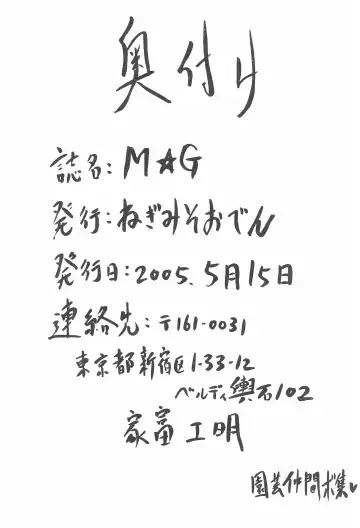 奥付け
誌名:M☆G
発行:ねぎみそおでん
発行日:2005.5月15日
連絡先:〒161-0031
東京都新宿区1-33-12
ベルディ輿石102
家富工明
園芸仲間募集♥